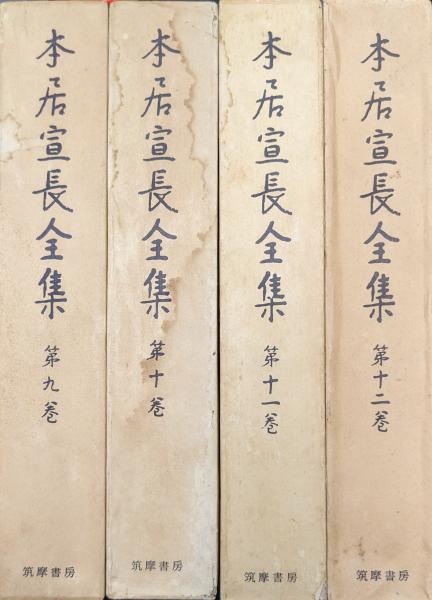 本居宣長全集 第九巻
筑摩書房
本居宣長全集 第十巻
筑摩書房
本居宣長全集 第十一巻
筑摩書房
本居宣長全集 第十二巻
筑摩書房